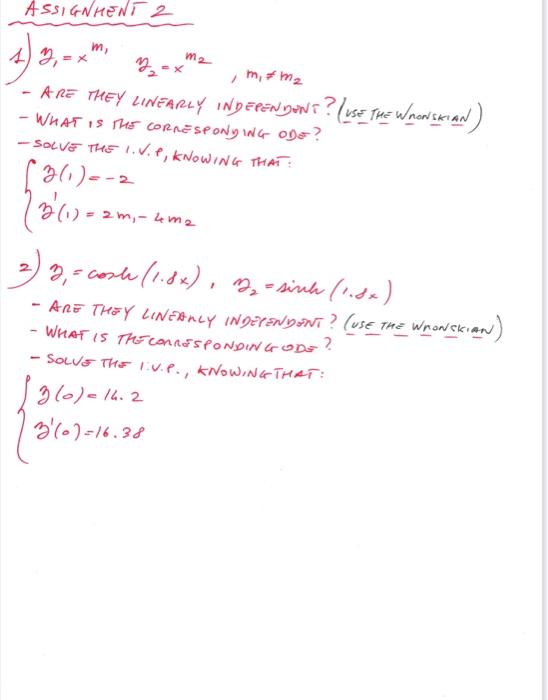 ASSIGNMENT 2
1) y₁ = x^m₁ y₂ = x^m₂ , m₁ ≠ m₂
- ARE THEY LINEARLY INDEPENDENT? (USE THE WRONSKIAN)
- WHAT IS THE CORRESPONDING ODE?
- SOLVE THE I.V.P, KNOWING THAT:
y(1) = -2
y'(1) = 2m₁ - 4m₂
2) y₁ = cosh (1.8x) , y₂ = sinh (1.8x)
- ARE THEY LINEARLY INDEPENDENT? (USE THE WRONSKIAN)
- WHAT IS THE CORRESPONDING ODE?
- SOLVE THE I.V.P., KNOWING THAT:
y(0) = 14.2
y'(0) = 16.38